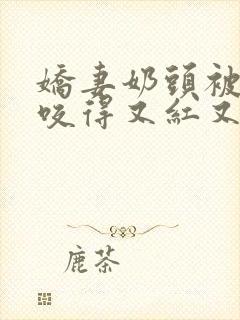 嬌妻奶頭被
咬得又紅又
鹿茶